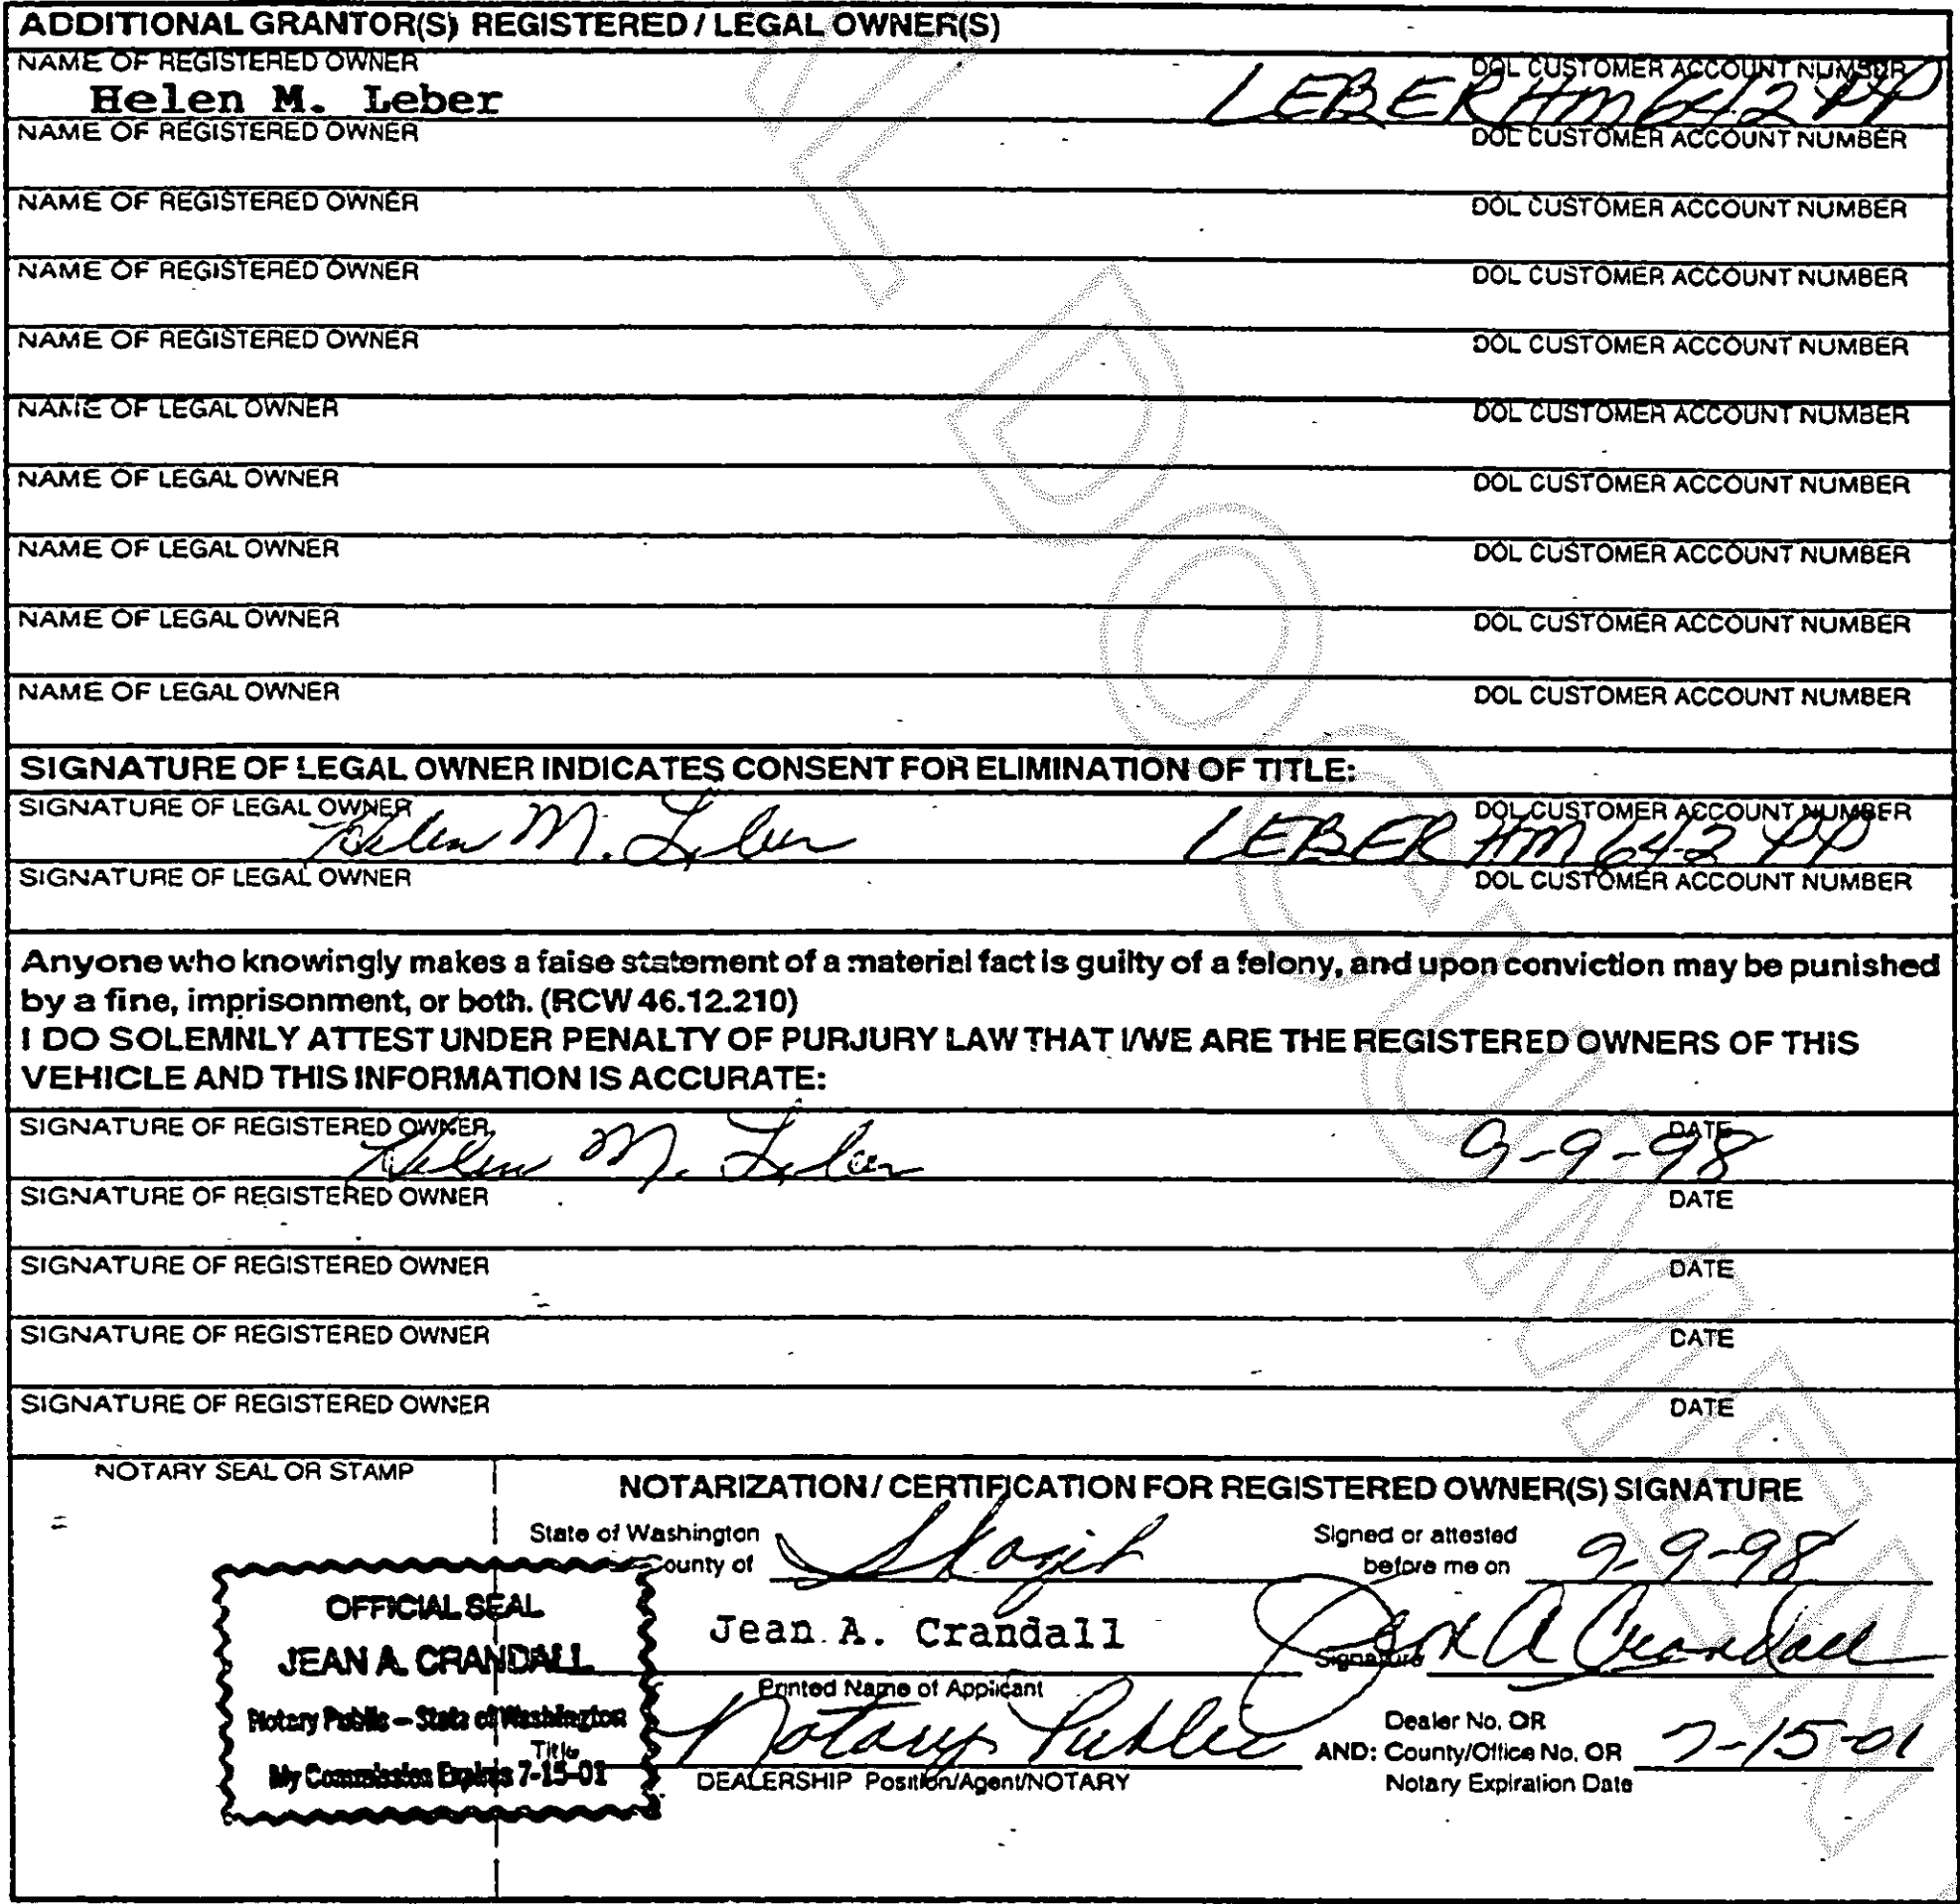 ADDITIONAL GRANTOR(S) REGISTERED / LEGAL OWNER(S)
NAME OF REGISTERED OWNER DOL CUSTOMER ACCOUNT NUMBER
Helen M. Leber LEBERHM642PP
NAME OF REGISTERED OWNER DOL CUSTOMER ACCOUNT NUMBER
NAME OF REGISTERED OWNER DOL CUSTOMER ACCOUNT NUMBER
NAME OF REGISTERED OWNER DOL CUSTOMER ACCOUNT NUMBER
NAME OF REGISTERED OWNER DOL CUSTOMER ACCOUNT NUMBER
NAME OF LEGAL OWNER DOL CUSTOMER ACCOUNT NUMBER
NAME OF LEGAL OWNER DOL CUSTOMER ACCOUNT NUMBER
NAME OF LEGAL OWNER DOL CUSTOMER ACCOUNT NUMBER
NAME OF LEGAL OWNER DOL CUSTOMER ACCOUNT NUMBER
NAME OF LEGAL OWNER DOL CUSTOMER ACCOUNT NUMBER
SIGNATURE OF LEGAL OWNER INDICATES CONSENT FOR ELIMINATION OF TITLE:
SIGNATURE OF LEGAL OWNER DOL CUSTOMER ACCOUNT NUMBER
Helen M. Leber LEBER HM 642 PP
SIGNATURE OF LEGAL OWNER DOL CUSTOMER ACCOUNT NUMBER
Anyone who knowingly makes a false statement of a material fact is guilty of a felony, and upon conviction may be punished
by a fine, imprisonment, or both. (RCW 46.12.210)
I DO SOLEMNLY ATTEST UNDER PENALTY OF PURJURY LAW THAT I/WE ARE THE REGISTERED OWNERS OF THIS
VEHICLE AND THIS INFORMATION IS ACCURATE:
SIGNATURE OF REGISTERED OWNER DATE
Helen M. Leber 9-9-98
SIGNATURE OF REGISTERED OWNER DATE
SIGNATURE OF REGISTERED OWNER DATE
SIGNATURE OF REGISTERED OWNER DATE
SIGNATURE OF REGISTERED OWNER DATE
NOTARY SEAL OR STAMP
NOTARIZATION / CERTIFICATION FOR REGISTERED OWNER(S) SIGNATURE
State of Washington Signed or attested
County of Skagit before me on 9-9-98
OFFICIAL SEAL
JEAN A. CRANDALL
Notary Public - State of Washington
My Commission Expires 7-15-01
Jean A. Crandall Signature Jean A Crandall
Printed Name of Applicant
Title Notary Public
DEALERSHIP Position/Agent/NOTARY
Dealer No. OR
AND: County/Office No. OR 7-15-01
Notary Expiration Date